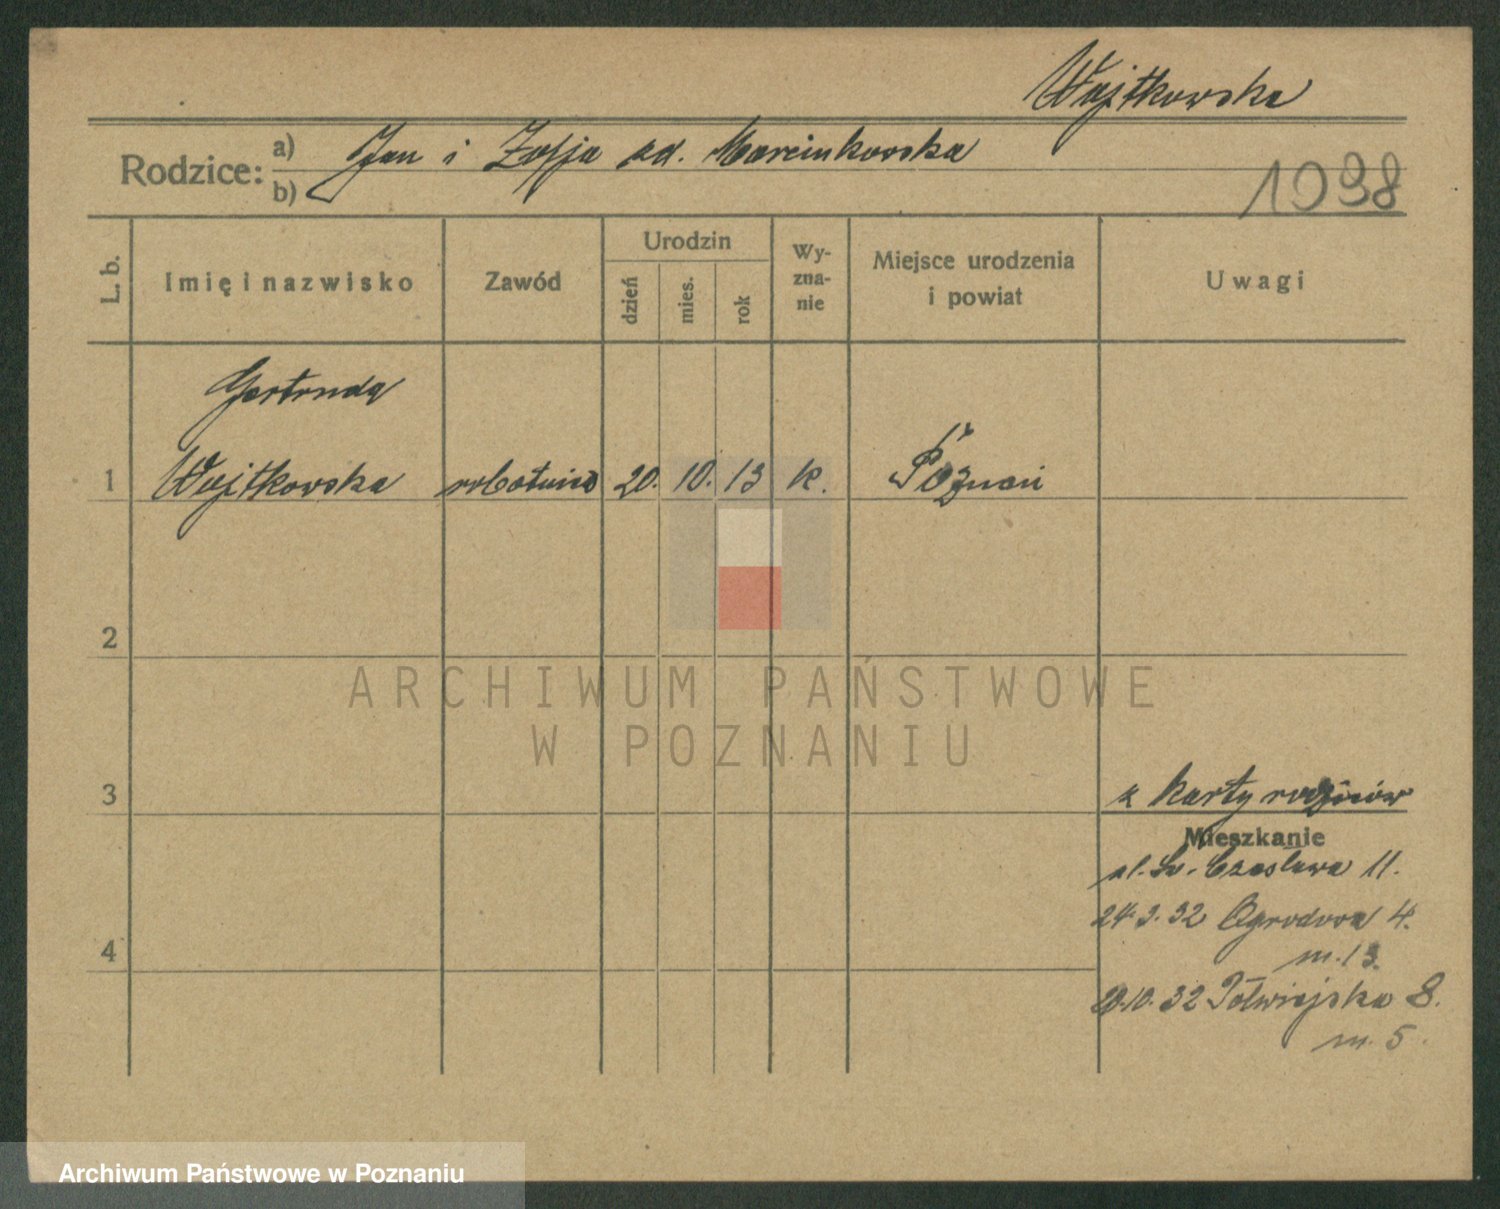 Wojtkowska
Rodzice: a) Jan i Zofja zd. Marcinkowska
b)
1938
L. b.
Imię i nazwisko
Zawód
Urodzin
dzień
mies.
rok
Wy-
zna-
nie
Miejsce urodzenia
i powiat
Uwagi
Gertruda
1 Wojtkowska robotnica 20. 10. 13 k. Poznań
2
ARCHIWUM PAŃSTWOWE
W POZNANIU
3 z karty rodziców
Mieszkanie
ul. Św. Czesława 11.
24.3.32 Ogrodowa 4.
m. 13.
4
20.10.32 Półwiejska 8.
m. 5.
Archiwum Państwowe w Poznaniu